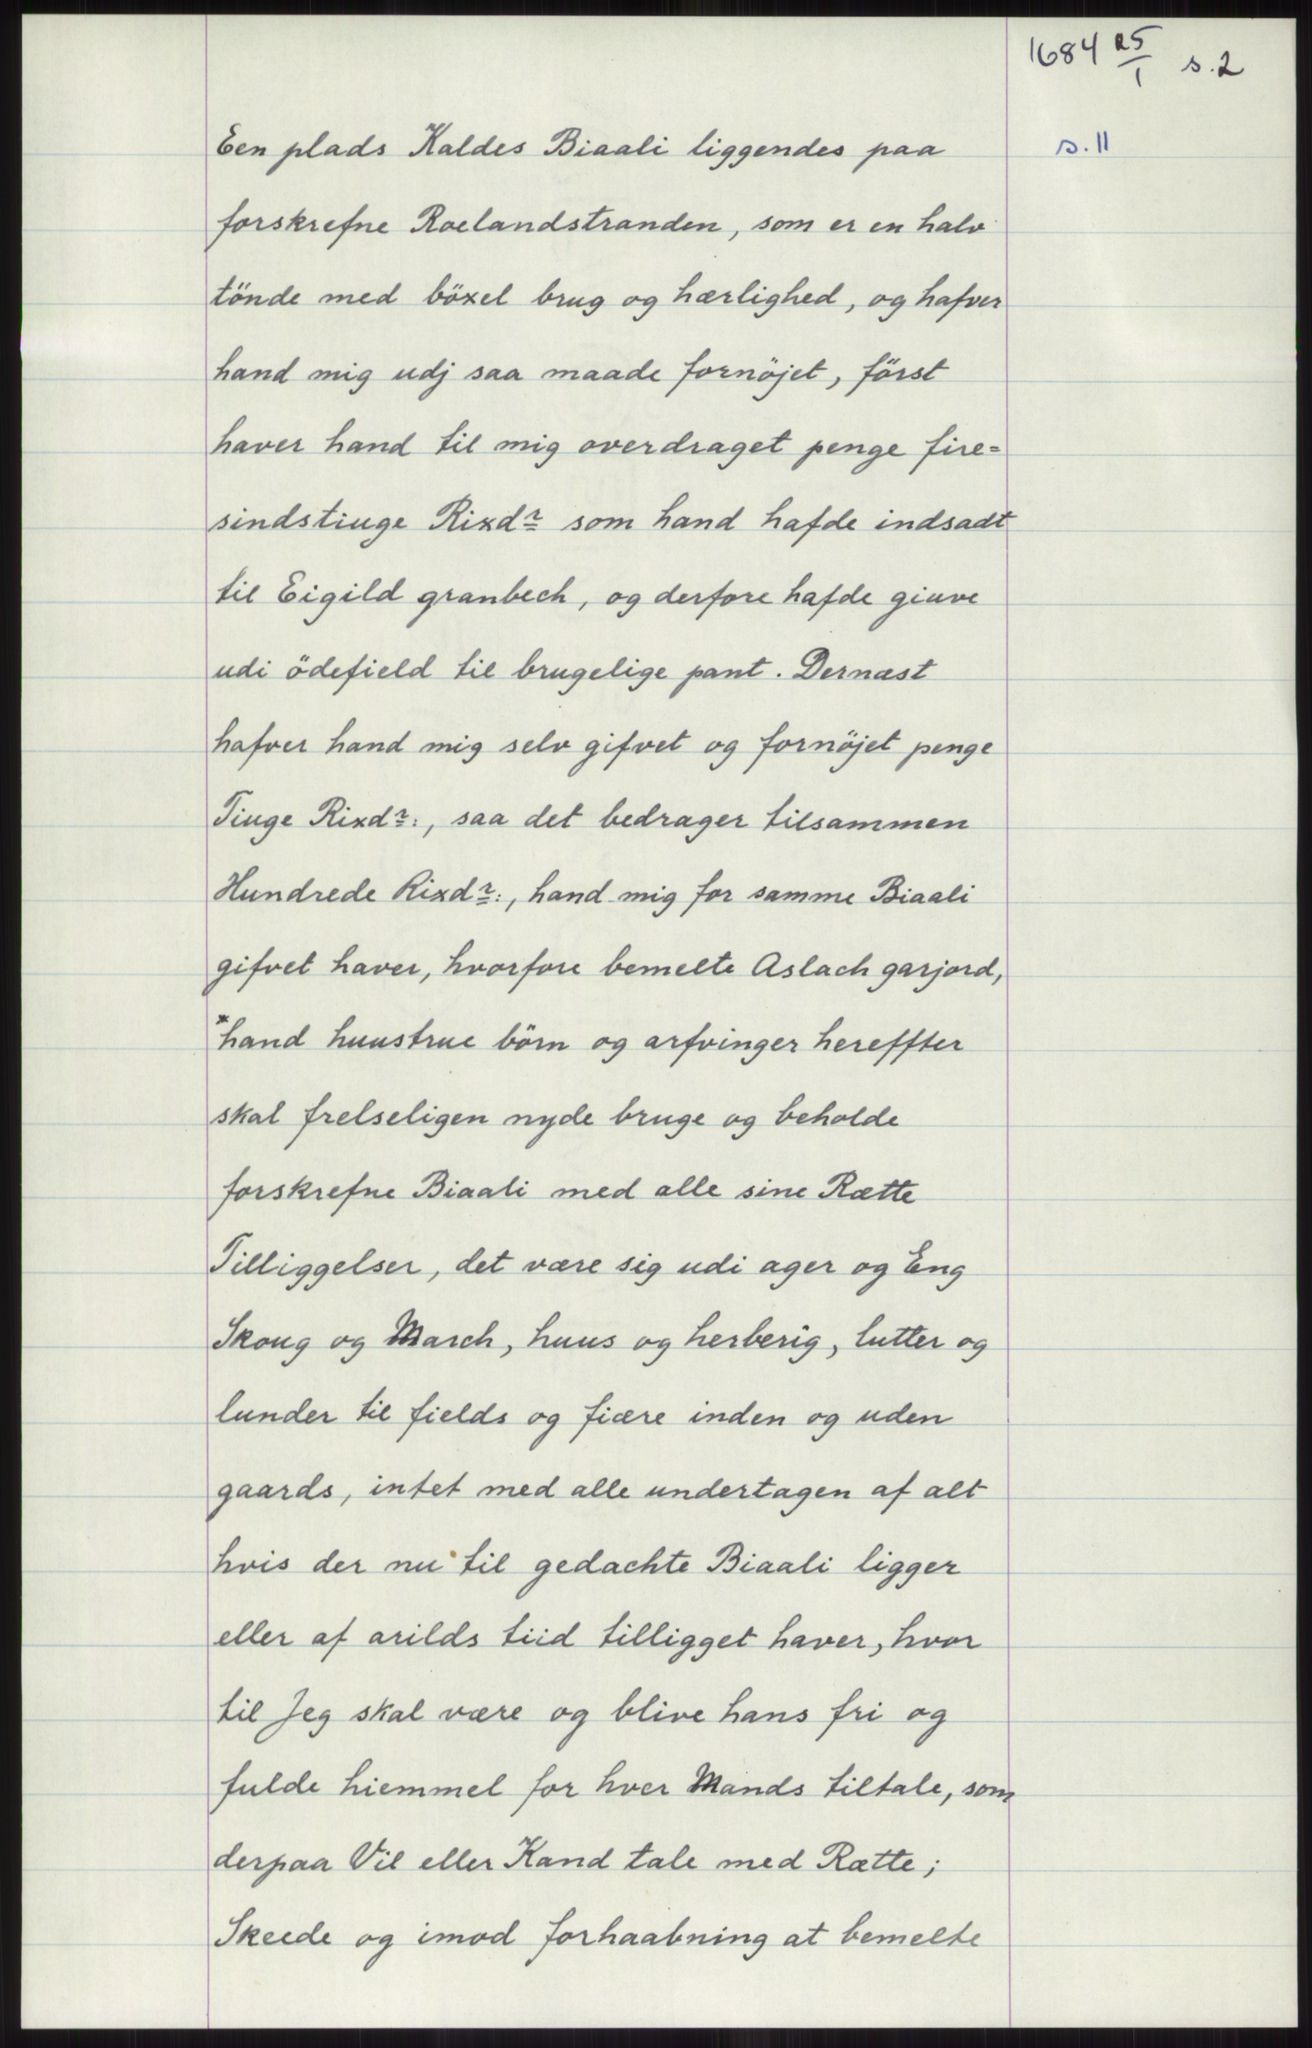 1684 25/1 s.2
s.11
Een plads Kaldes Biaali liggendes paa
forskrefne Roelandstranden, som er en halv
tönde med böxel brug og hærlighed, og hafver
hand mig udj saa maade fornöjet, först
haver hand til mig overdraget penge fire=
sindstiuge Rixdr som hand hafde indsadt
til Eigild granbech, og derfore hafde giuve
udi ödefield til brugelige pant. Dernæst
hafver hand mig selv gifvet og fornöjet penge
Tiuge Rixdr:, saa det bedrager tilsammen
Hundrede Rixdr:, hand mig for samme Biaali
gifvet haver, hvorfore bemelte Aslach garjord,
*hand huustrue börn og arfvinger hereffter
skal frelseligen nyde bruge og beholde
forskrefne Biaali med alle sine Rætte
Tilliggelser, det være sig udi ager og Eng
Skoug og March, huus og herberig, lutter og
lunder til fields og fiære inden og uden
gaards, intet med alle undertagen af alt
hvis der nu til gedachte Biaali ligger
eller af arilds tiid tilligget haver, hvor
til Jeg skal være og blive hans fri og
fulde hiemmel for hver Mands tiltale, som
derpaa Vil eller Kand tale med Rætte;
Skeede og imod forhaabning at bemelte